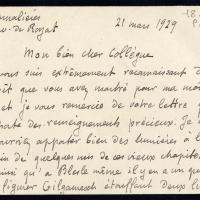 nnalières
av. de Royat
21 mars 1929
18.
Mon bien cher Collègue
vous suis extrêmement reconnaissant d
it que vous avez montré pour ma mo
et je vous remercie de votre lettre q
porte des renseignements précieux. Je
ourriez apporter bien des lumières à l
in de quelques-uns de ces vieux chapite
insi qu'à Blesle même il y en a un qu
figurer Gilgamesh étouffant deux li